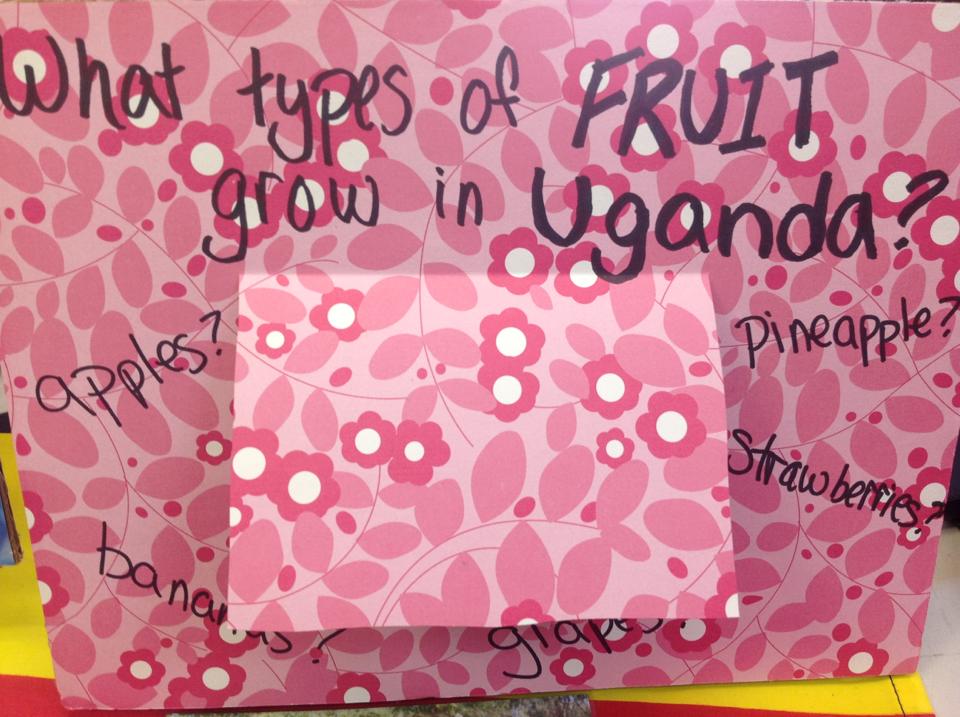 What types of FRUIT
grow in Uganda?
apples?
pineapple?
strawberries?
bananas?
grapes?